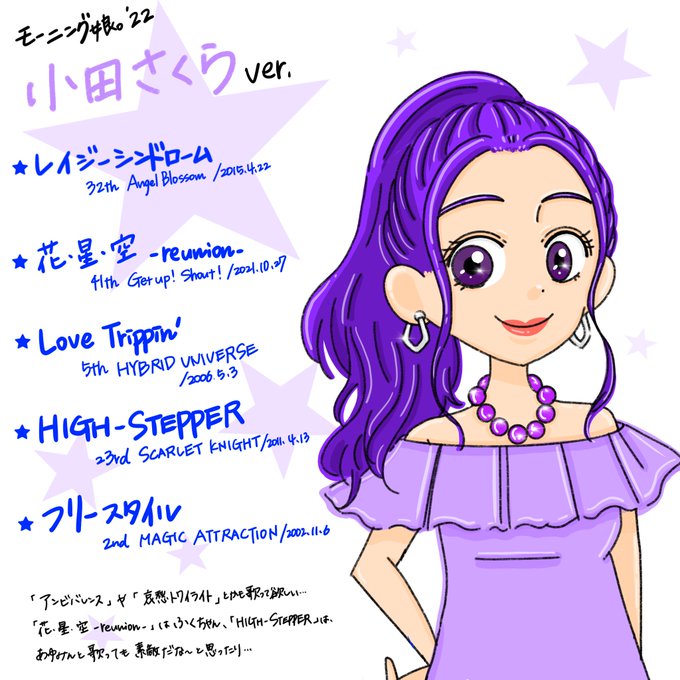 モーニング娘。'22
小田さくら ver.
★レイジーシンドローム
32th Angel Blossom /2015.4.22
★花・星・空 -reunion-
41th Get up! Shout! /2021.10.27
★Love Trippin'
5th HYBRID UNIVERSE
/2006.5.3
★HIGH-STEPPER
23rd SCARLET KNIGHT/2011.4.13
★フリースタイル
2nd MAGIC ATTRACTION/2002.11.6
「アンビバレンス」や「哀愁トワイライト」とかも歌って欲しい…
「花・星・空 -reunion-」はふくちゃん、「HIGH-STEPPER」は、
あゆみんと歌っても素敵だな〜と思ったり…